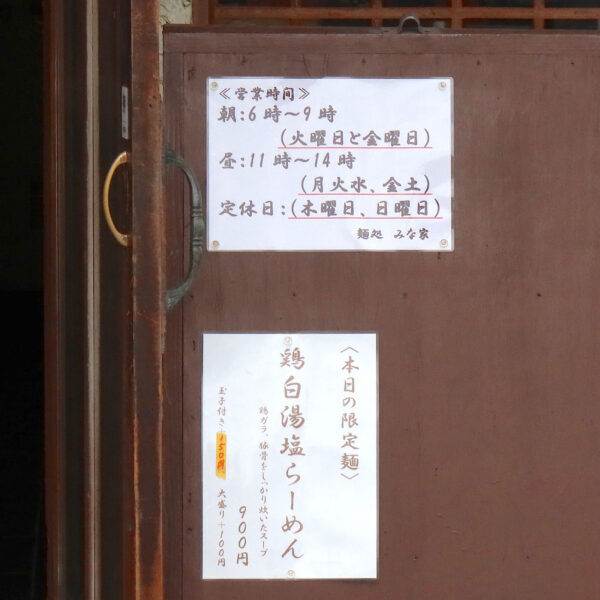 ≪営業時間≫
朝:6時～9時
(火曜日と金曜日)
昼:11時～14時
(月火水、金土)
定休日:(木曜日、日曜日)
麺処 みな家
〈本日の限定麺〉
鶏白湯塩らーめん
鶏ガラ、豚骨をしっかり炊いたスープ
900円
玉子付き+150円 大盛り+100円